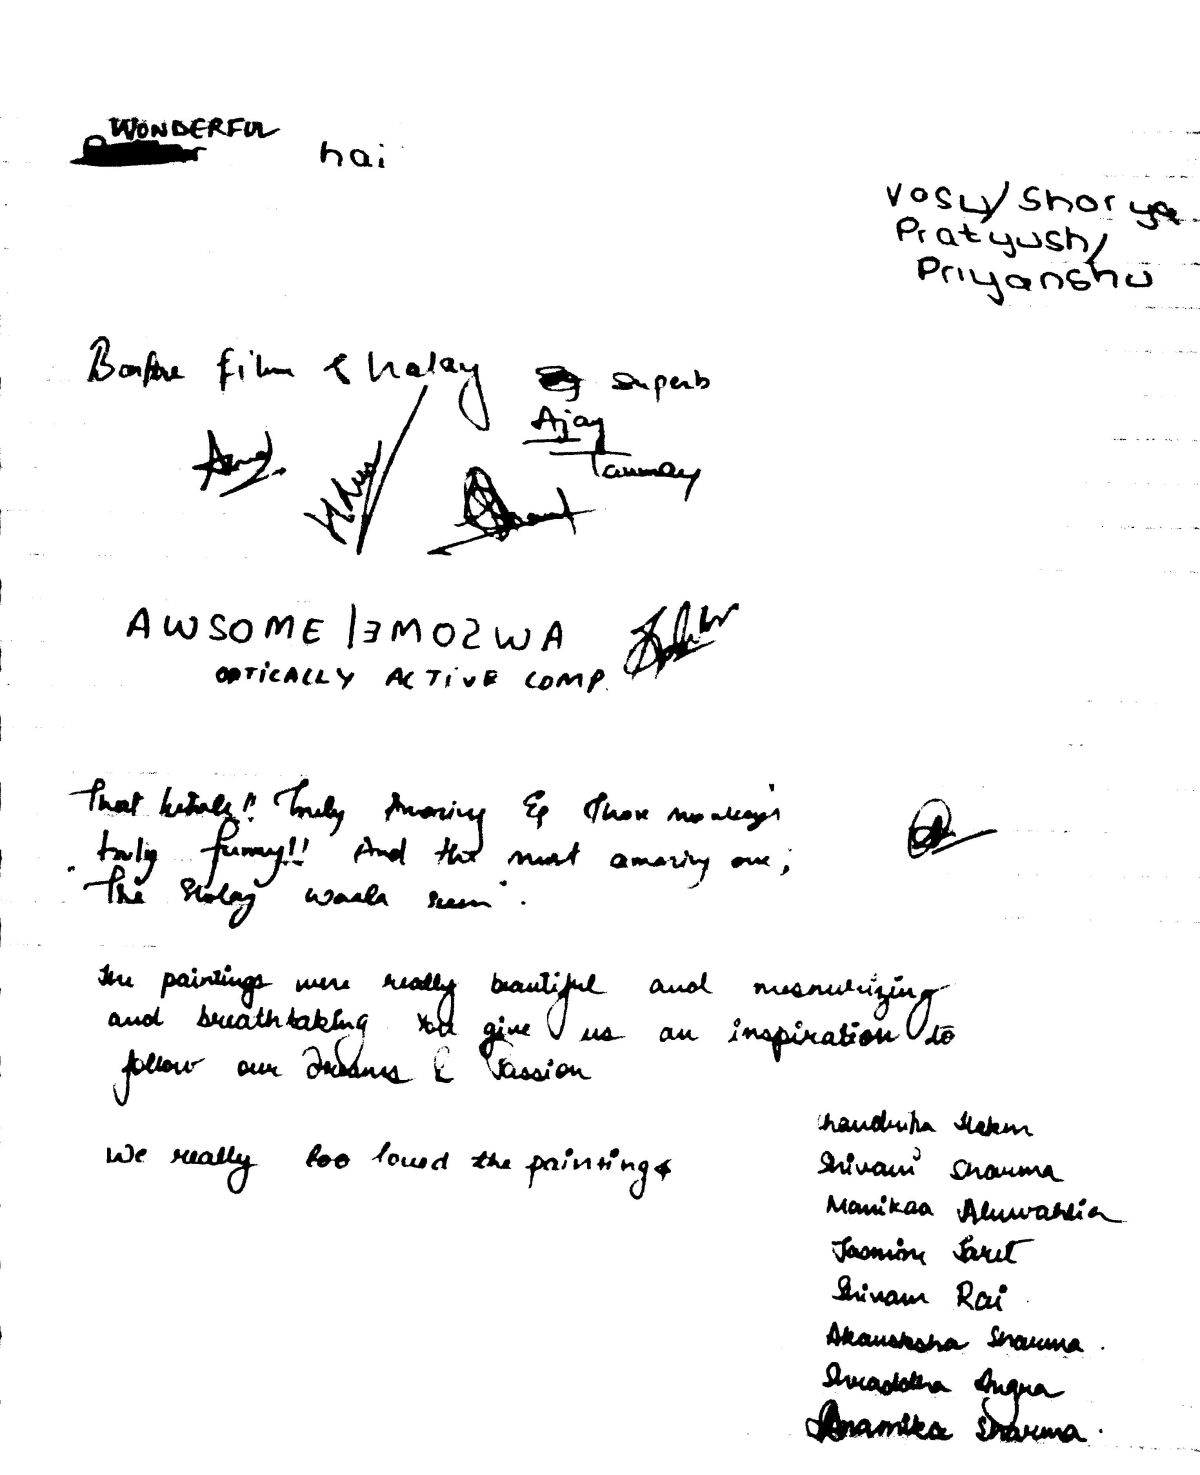 WONDERFUL
hai
Vosu/Shorya
Pratyush/
Priyanshu
Bonfire film & halay superb
Ajay
Tanmay
AWSOME | AWSOME
OPTICALLY ACTIVE COMP.
That !! Truly Amazing & Those monkeys
truly funny!! And the most amazing one;
"The seen".
The paintings were really beautiful and mesmerizing
and breathtaking You give us an inspiration to
follow our Dreams & Passion
We really too loved the paintings
Shivani Sharma
Manikaa Aluwahlia
Jasmine
Shivam Rai
Akanksha Sharma.
Shraddha Angra
Anamika Sharma.